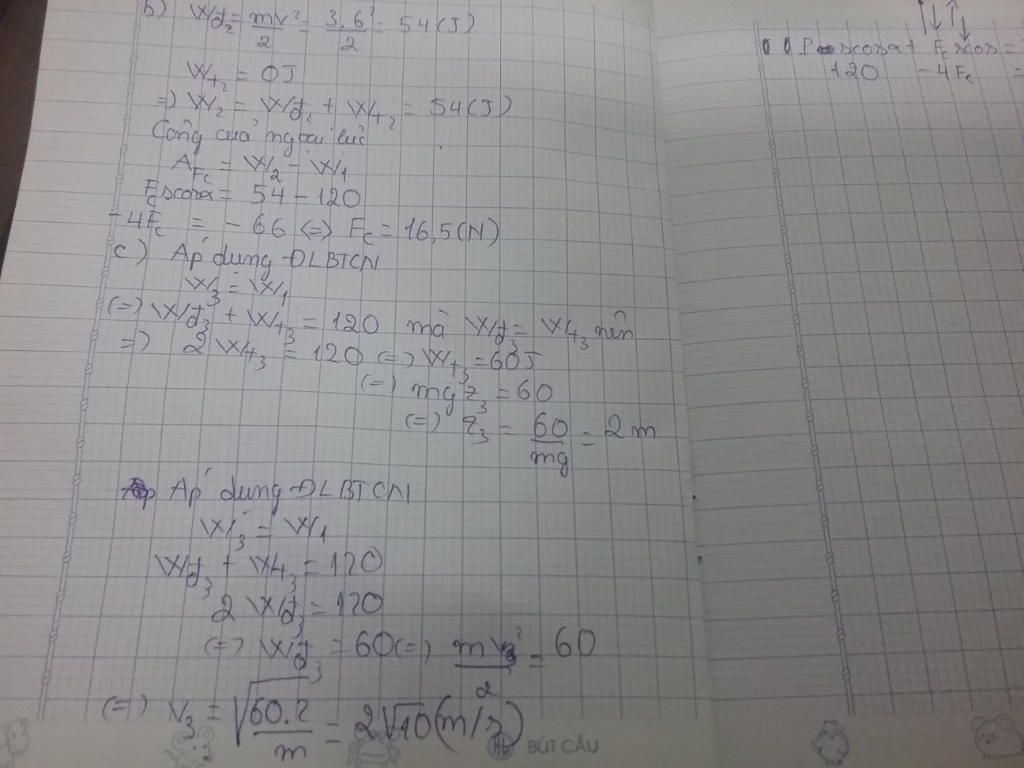 b) Wđ₂ = mv²/2 = 3.6²/2 = 54 (J)
Wt₂ = 0J
=) W₂ = Wđ₂ + Wt₂ = 54 (J)
Công của ngoại lực
A_Fc = W₂ - W₁
Fc s cosα = 54 - 120
-4Fc = -66 (=) Fc = 16,5 (N)
c) Áp dụng ĐLBTCN
W₃ = W₁
(=) Wđ₃ + Wt₃ = 120 mà Wđ₃ = Wt₃ nên
=) 2Wt₃ = 120 (=) Wt₃ = 60J
(=) mgz₃ = 60
(=) z₃ = 60/mg = 2m
Áp dụng ĐLBTCN
W₃ = W₁
Wđ₃ + Wt₃ = 120
2Wđ₃ = 120
(=) Wđ₃ = 60 (=) mv₃²/2 = 60
(=) v₃ = √(60.2/m) = 2√10 (m/s)
BÚT CẦU
P s cosα + Fc s cosα =
120 - 4Fc =